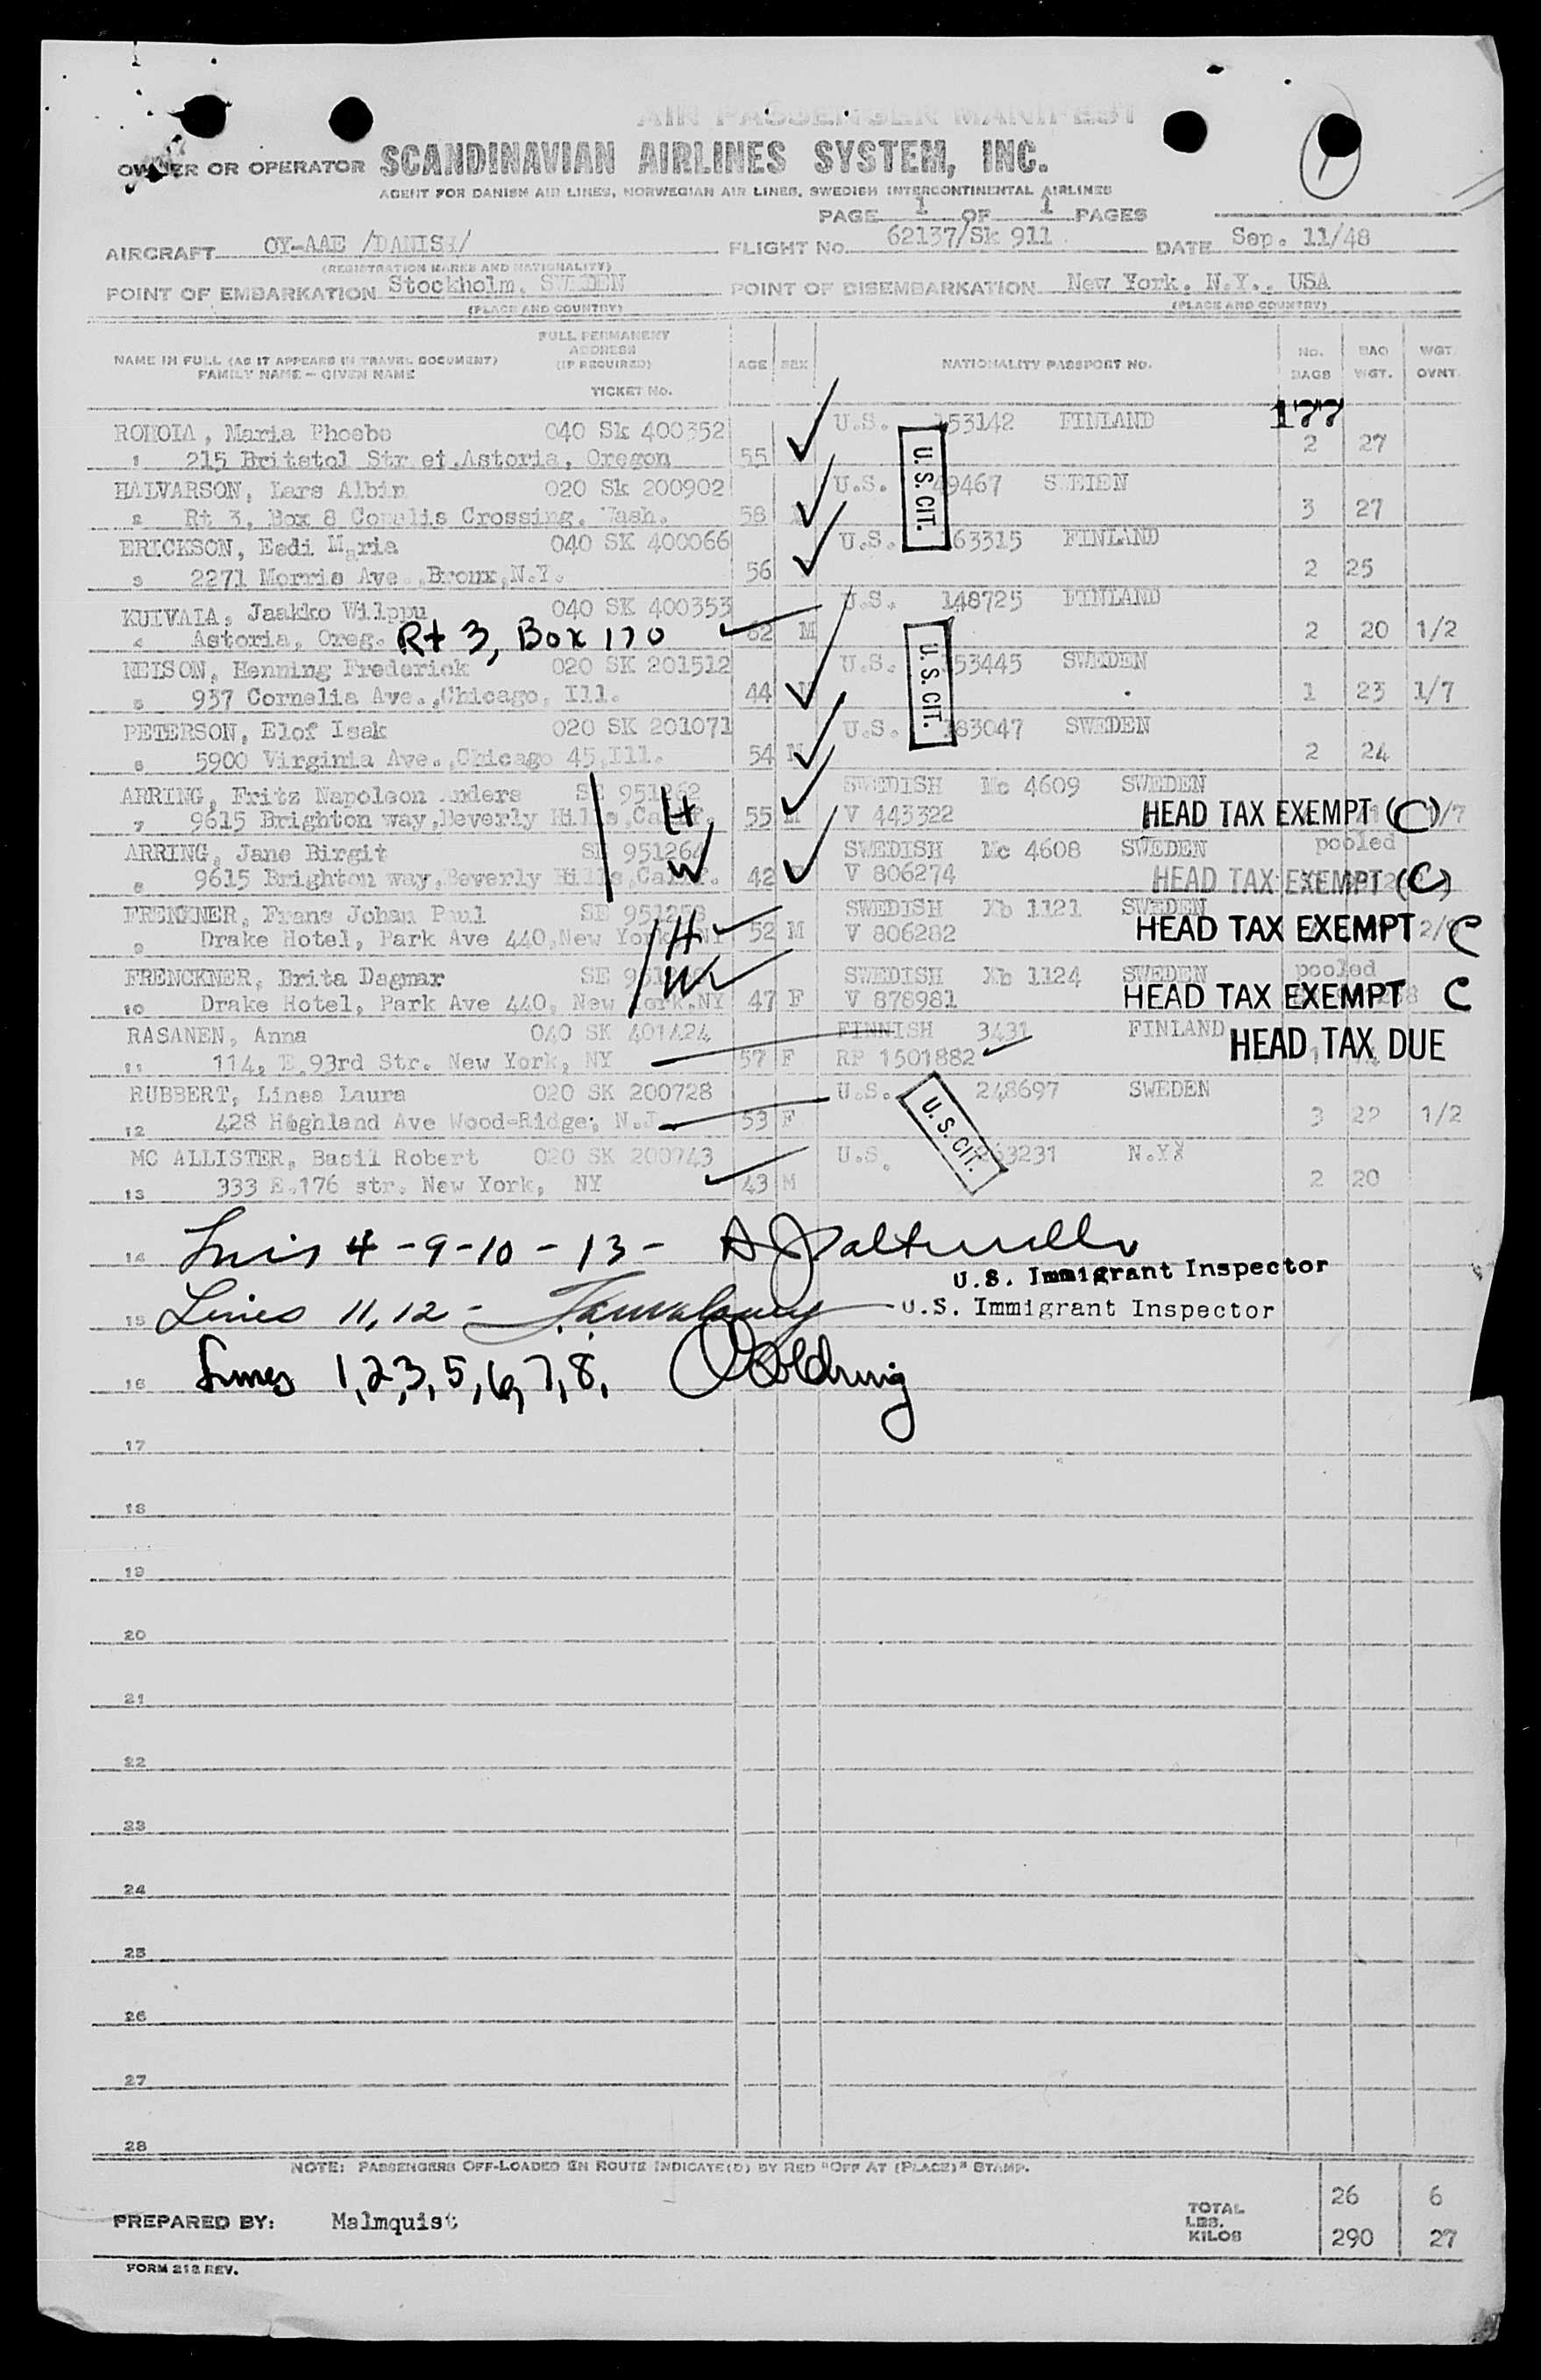 AIR PASSENGER MANIFEST
OWNER OR OPERATOR SCANDINAVIAN AIRLINES SYSTEM, INC.
AGENT FOR DANISH AIR LINES, NORWEGIAN AIR LINES, SWEDISH INTERCONTINENTAL AIRLINES
PAGE 1 OF 1 PAGES
AIRCRAFT OY-AAE /DANISH/ FLIGHT No. 62137/Sk 911 DATE Sep. 11/48
(REGISTRATION MARKS AND NATIONALITY)
POINT OF EMBARKATION Stockholm, SWEDEN POINT OF DISEMBARKATION New York, N.Y., USA
(PLACE AND COUNTRY) (PLACE AND COUNTRY)
NAME IN FULL (AS IT APPEARS IN TRAVEL DOCUMENT) FAMILY NAME – GIVEN NAME FULL PERMANENT ADDRESS (IF REQUIRED) TICKET No. AGE SEX NATIONALITY PASSPORT No. No. BAGS BAG WGT. WGT. OVNT.
177
Maria Phoebe 040 Sk 400352 U.S. 153142 FINLAND
1 215 Astoria, Oregon 55 2 27
HALVARSON, Lars Albin 020 Sk 200902 U.S. 49467
2 Rt 3, Box 8 Crossing, Wash. 58 3 27
U.S. CIT.
ERICKSON, Eedi Maria 040 SK 400066 U.S. 63315 FINLAND
3 2271 Morris Ave., Bronx, N.Y. 56 2 25
Jaakko Wilppu 040 SK 400353 U.S. 148725 FINLAND
4 Astoria, Oreg. Rt 3, Box 170 62 M 2 20 1/2
NELSON, Henning Frederick 020 SK 201512 U.S. 53445 SWEDEN
5 937 Cornelia Ave., Chicago, Ill. 44 M 1 23 1/7
U.S. CIT.
PETERSON, Elof Isak 020 SK 201071 U.S. 183047 SWEDEN
6 5900 Virginia Ave., Chicago 45, Ill. 54 M 2 24
ARRING, Fritz Napoleon Anders SE 951262 H SWEDISH Mc 4609 SWEDEN
7 9615 Brighton way, Beverly Hills, Calif. 55 M V 443322 HEAD TAX EXEMPT (C) /7
ARRING, Jane Birgit SE 951264 W SWEDISH Mc 4608 SWEDEN pooled
8 9615 Brighton way, Beverly Hills, Calif. 42 V 806274 HEAD TAX EXEMPT (C)
FRENCKNER, Frans Johan Paul SE 951258 H SWEDISH Xb 1121 SWEDEN
9 Drake Hotel, Park Ave 440, New York, NY 52 M V 806282 HEAD TAX EXEMPT 2/ C
FRENCKNER, Brita Dagmar SE W SWEDISH Xb 1124 SWEDEN pooled
10 Drake Hotel, Park Ave 440, New York, NY 47 F V 878981 HEAD TAX EXEMPT C
RASANEN, Anna 040 SK 401424 FINNISH 3431 FINLAND
11 114, E.93rd Str. New York, NY 57 F RP 1501882 HEAD TAX DUE
RUBBERT, Linea Laura 020 SK 200728 U.S. 248697 SWEDEN
12 428 Highland Ave Wood-Ridge, N.J. 53 F 3 22 1/2
U.S. CIT.
MC ALLISTER, Basil Robert 020 SK 200743 U.S. 263231 N.Y.
13 333 E.176 str. New York, NY 43 M 2 20
14 Lines 4 - 9 - 10 - 13 -
U.S. Immigrant Inspector
15 Lines 11, 12 - U.S. Immigrant Inspector
16 Lines 1, 2, 3, 5, 6, 7, 8,
17
18
19
20
21
22
23
24
25
26
27
28
NOTE: PASSENGERS OFF-LOADED EN ROUTE INDICATE(D) BY RED "OFF AT (PLACE)" STAMP.
PREPARED BY: Malmquist TOTAL LBS. KILOS
26 6
290 27
FORM 212 REV.